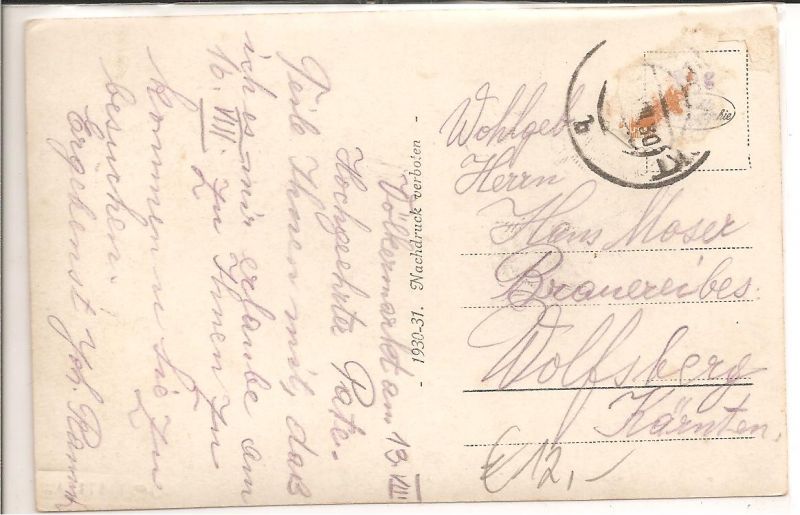 Völkermarkt am 13. VIII
Hochgeehrter Pate.
Teile Ihnen mit, daß
ich es mir erlaube am
16. VIII. zu Ihnen zu
kommen u Sie zu
besuchen.
Ergebenst Joh.
- 1930-31. Nachdruck verboten -
Wohlgeb
Herrn
Hans Moser
Brauereibes.
Wolfsberg
Kärnten.
€ 12,-